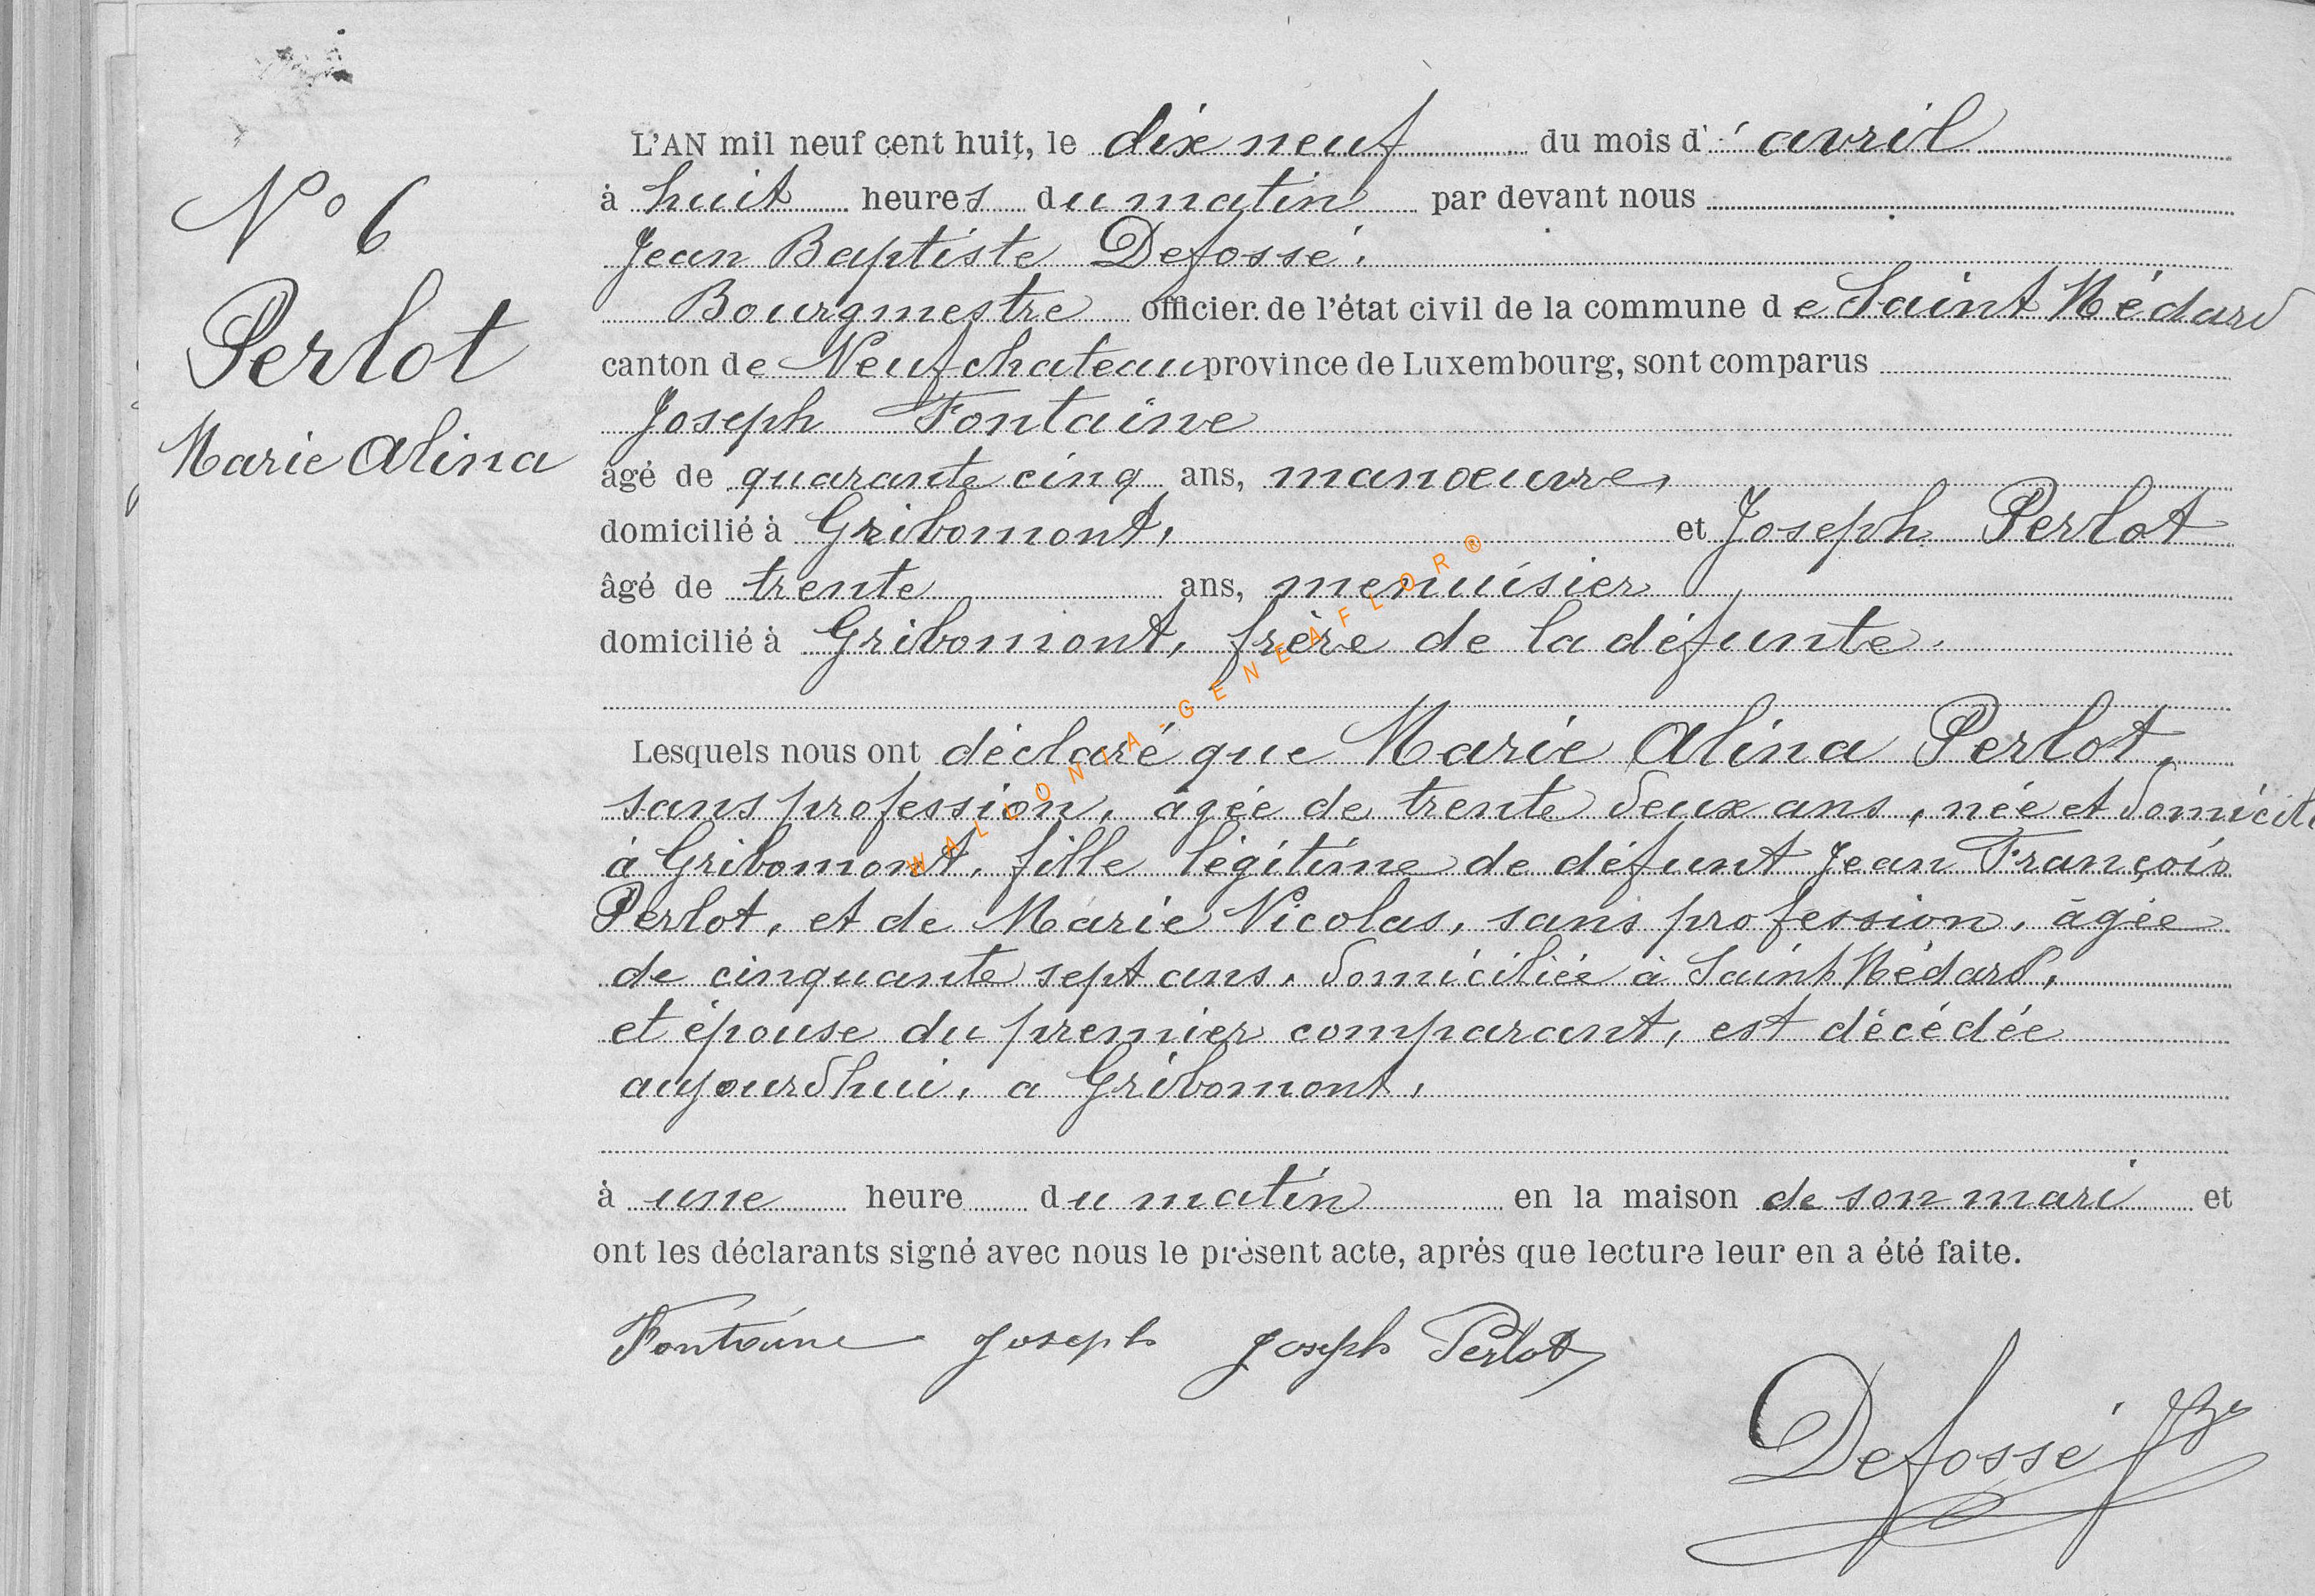 N° 6
Perlot
Marie Alina
L'AN mil neuf cent huit, le dix neuf du mois d' avril
à huit heures du matin par devant nous
Jean Baptiste Defossé,
Bourgmestre officier de l'état civil de la commune de Saint Médard
canton de Neufchateau province de Luxembourg, sont comparus
Joseph Fontaine
âgé de quarante cinq ans, manœuvre,
domicilié à Gribomont, et Joseph Perlot
âgé de trente ans, menuisier
domicilié à Gribomont, frère de la défunte.
Lesquels nous ont déclaré que Marie Alina Perlot,
sans profession, âgée de trente deux ans, née et domicili
à Gribomont, fille légitime de défunt Jean François
Perlot, et de Marie Nicolas, sans profession, âgée
de cinquante sept ans, domiciliée à Saint Médard,
et épouse du premier comparant, est décédée
aujourdhui, a Gribomont,
à une heure du matin en la maison de son mari et
ont les déclarants signé avec nous le présent acte, après que lecture leur en a été faite.
Fontaine Joseph Joseph Perlot
Defossé JB
WALLONIA-GENEAFLOR®